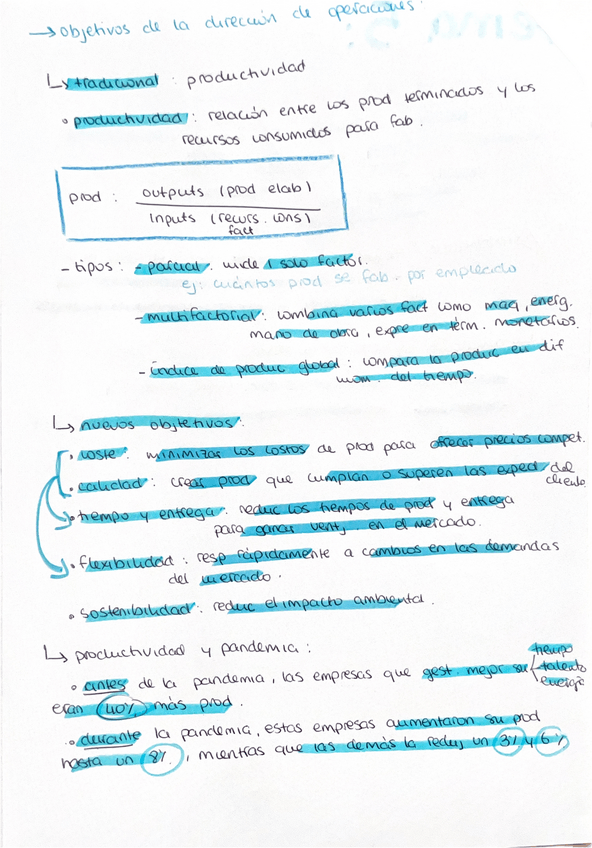 → objetivos de la dirección de operaciones:
↳ tradicional : productividad
• productividad : relación entre los prod terminados y los
recursos consumidos para fab.
prod : outputs (prod elab)
inputs (recurs. cons)
fact
- tipos : - parcial : mide 1 solo factor.
ej: cuántos prod se fab. por empleado
- multifactorial : combina varios fact como maq, energ.
mano de obra, expre en térm. monetarios.
- índice de produc global : compara la produc en dif
mom. del tiempo.
↳ nuevos objetivos :
• coste : minimizar los costos de prod para ofrecer precios compet.
• calidad : crear prod que cumplan o superen las exped del
cliente
• tiempo y entrega : reduc los tiempos de prod y entrega
para ganar vent. en el mercado.
• flexibilidad : resp rápidamente a cambios en las demandas
del mercado.
• sostenibilidad : reduc el impacto ambiental.
↳ productividad y pandemia :
• antes de la pandemia, las empresas que gest. mejor su tiempo
talento
energía
eran 40% más prod.
• durante la pandemia, estas empresas aumentaron su prod
hasta un 8%, mientras que las demás la reduj un 3% y 6%